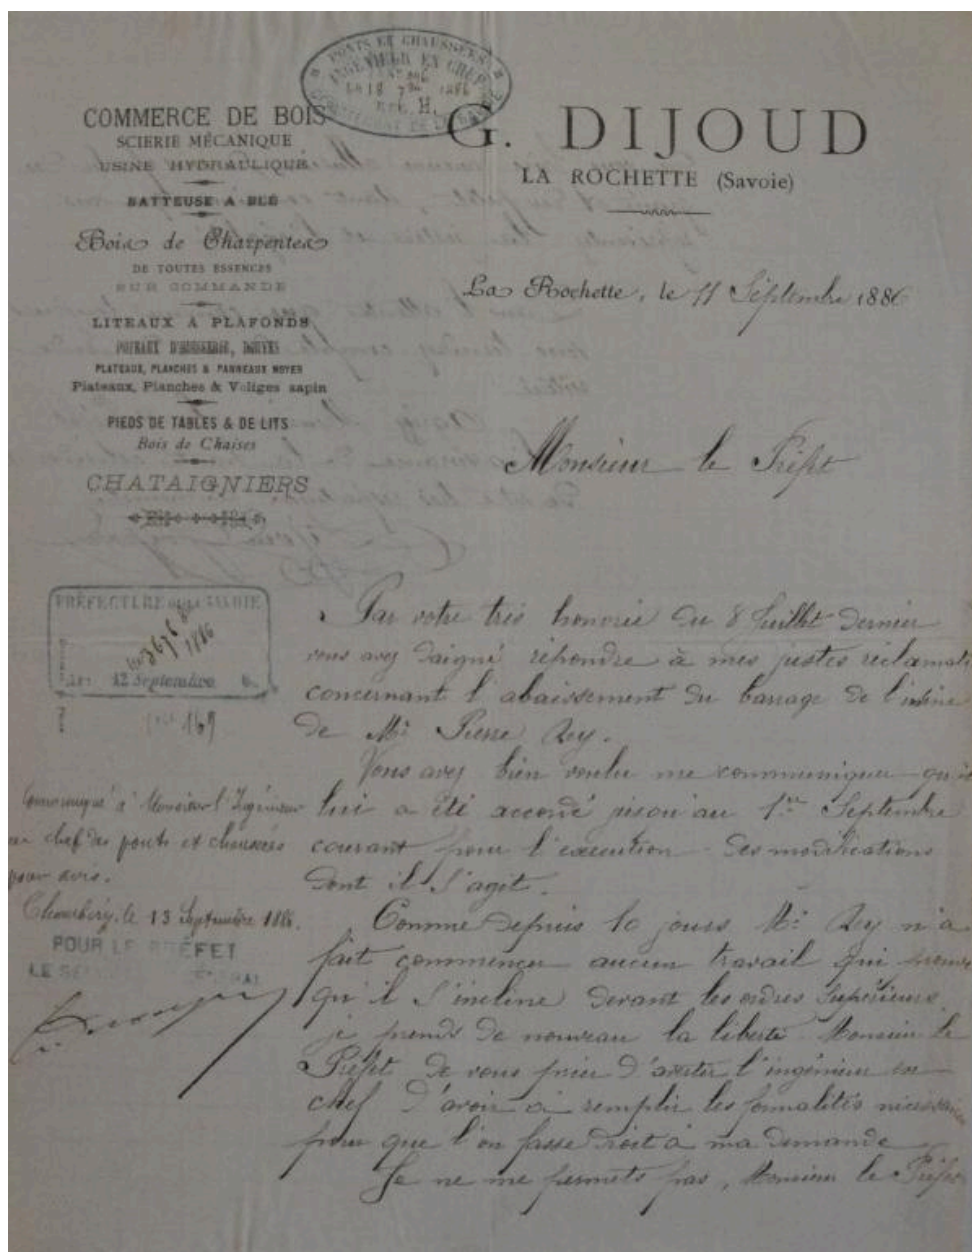 PONTS ET CHAUSSÉES
INGÉNIEUR EN CHEF
18 7bre 1886
H.
COMMERCE DE BOIS
SCIERIE MÉCANIQUE
USINE HYDRAULIQUE
BATTEUSE A BLÉ
Bois de Charpentes
DE TOUTES ESSENCES
SUR COMMANDE
LITEAUX A PLAFONDS
POTEAUX D'HUISSERIE, DOUVES
PLATEAUX, PLANCHES & PANNEAUX NOYER
Plateaux, Planches & Voliges sapin
PIEDS DE TABLES & DE LITS
Bois de Chaises
CHATAIGNIERS
G. DIJOUD
LA ROCHETTE (Savoie)
La Rochette, le 11 Septembre 1886
Monsieur le Préfet
PRÉFECTURE DE LA SAVOIE
1886
12 Septembre
169
Communiqué à Monsieur l'Ingénieur
en chef des ponts et chaussées
pour avis.
Chambéry, le 13 Septembre 1886.
POUR LE PRÉFET
Par votre très honorée du 8 Juillet dernier
vous avez daigné répondre à mes justes réclamati
concernant l'abaissement du barrage de l'usine
de Mr Pierre Rey.
Vous avez bien voulu me communiquer qu'il
lui a été accordé jusqu'au 1er Septembre
courant pour l'exécution des modifications
dont il s'agit.
Comme depuis 10 jours Mr Rey n'a
fait commencer aucun travail qui prouve
qu'il s'incline devant les ordres supérieurs
je prends de nouveau la liberté Monsieur le
Préfet de vous prier d'aviser l'ingénieur en
chef d'avoir à remplir les formalités nécessaires
pour que l'on fasse droit à ma demande
Je ne me permets pas, Monsieur le Préfet